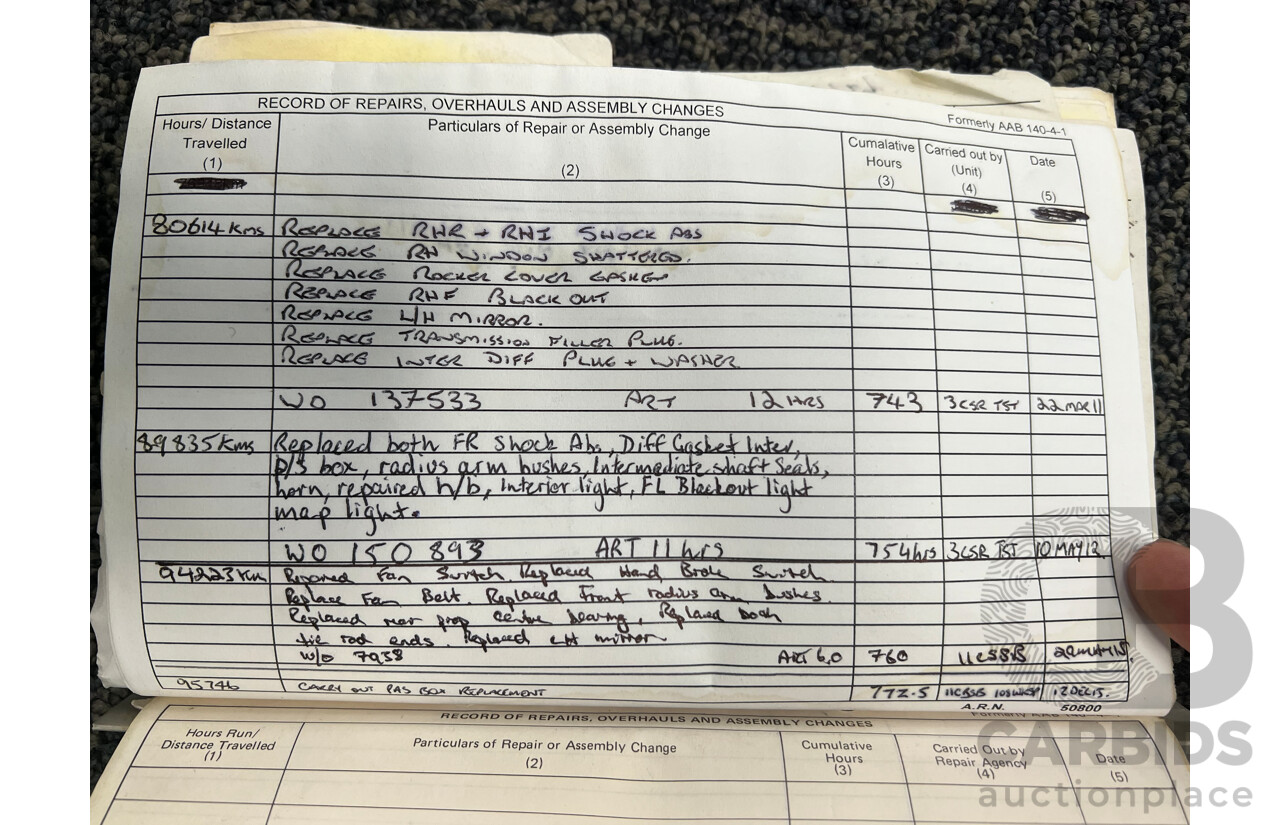 RECORD OF REPAIRS, OVERHAULS AND ASSEMBLY CHANGES
Formerly AAB 140-4-1
Hours/ Distance Travelled (1)
Particulars of Repair or Assembly Change (2)
Cumalative Hours (3)
Carried out by (Unit) (4)
Date (5)
80614 kms REPLACE RHR + RHI SHOCK ABS
REPLACE RH WINDOW SHATTERED.
REPLACE ROCKER COVER GASKET
REPLACE RHF BLACK OUT
REPLACE L/H MIRROR.
REPLACE TRANSMISSION FILLER PLUG.
REPLACE INTER DIFF PLUG + WASHER
WO 137533 ART 12 HRS 743 3CSR TST 22 MAR 11
89835 Kms Replaced both FR Shock Abs, Diff Gasket Inter,
P/S box, radius arm bushes, Intermediate shaft Seals,
horn, repaired h/b, Interior light, FL Blackout light
map light.
WO 150 893 ART 11 hrs 754hrs 3CSR TST 10 MAY 12
94223 Km Repaired Fan Switch Replaced Hand Brake Switch
Replace Fan Belt. Replaced front radius arm bushes
Replaced rear prop centre bearing, Replaced both
tie rod ends. Replaced mirror
W/o 7938 ART 6.0 760 11CSSB
95746 CARRY OUT PAS BOX REPLACEMENT 772.5 12 DEC 15.
A.R.N. 50800
RECORD OF REPAIRS, OVERHAULS AND ASSEMBLY CHANGES
Hours Run/ Distance Travelled (1)
Particulars of Repair or Assembly Change (2)
Cumulative Hours (3)
Carried Out by Repair Agency (4)
Date (5)
CARBIDS
auctionplace